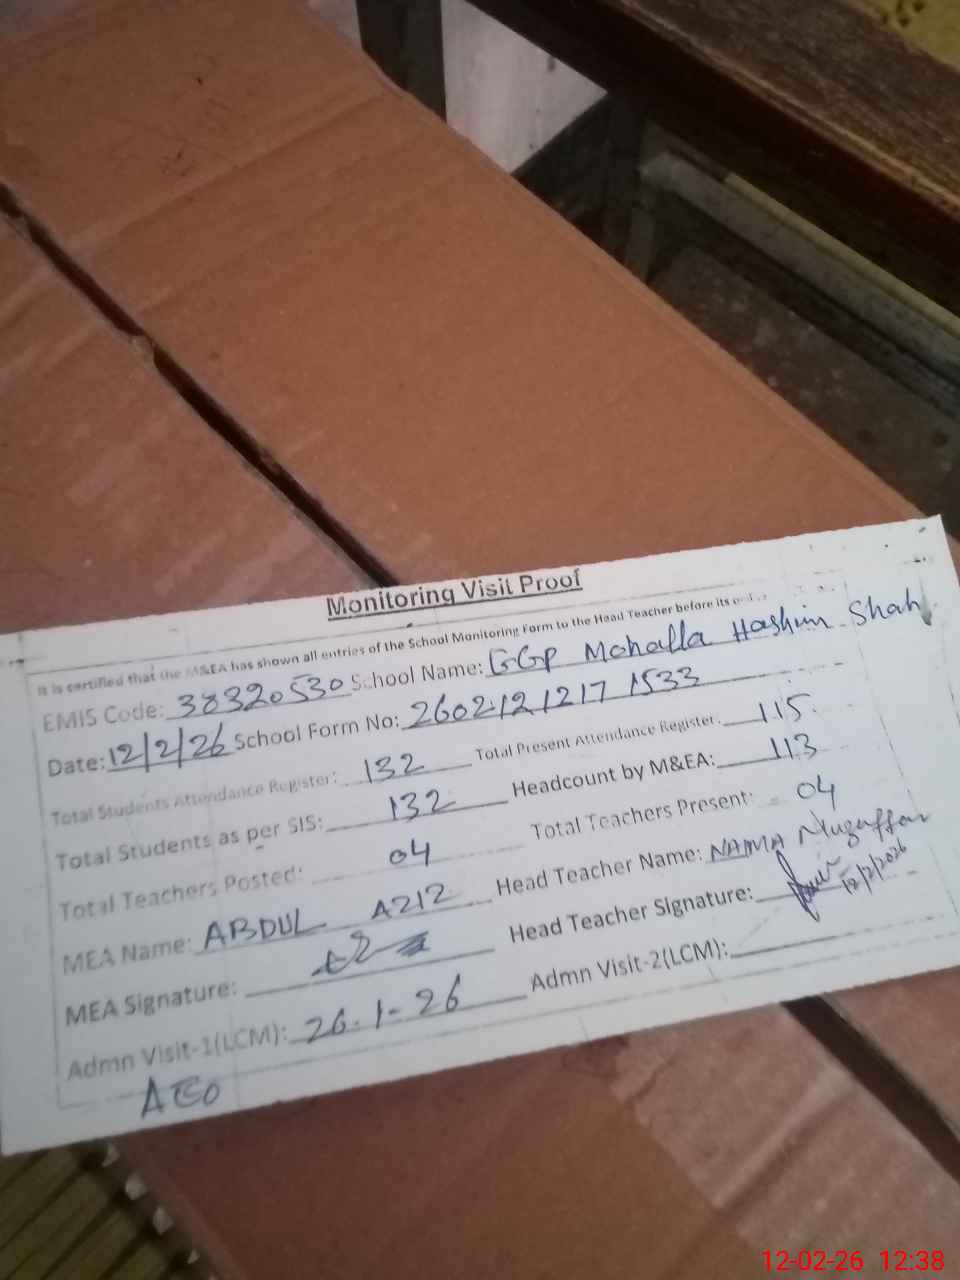 Monitoring Visit Proof
It is certified that the M&EA has shown all entries of the School Monitoring Form to the Head Teacher before its
EMIS Code: 38320530 School Name: GGP Mohalla Hashim Shah
Date: 12/2/26 School Form No: 260212 1217 1533
Total Students Attendance Register: 132 Total Present Attendance Register: 115
Total Students as per SIS: 132 Headcount by M&EA: 113
Total Teachers Posted: 04 Total Teachers Present: 04
MEA Name: ABDUL AZIZ Head Teacher Name: NAIMA Muzaffar
MEA Signature: Head Teacher Signature: 12/2/2026
Admn Visit-1(LCM): 26-1-26 Admn Visit-2(LCM):
AEO
12-02-26 12:38